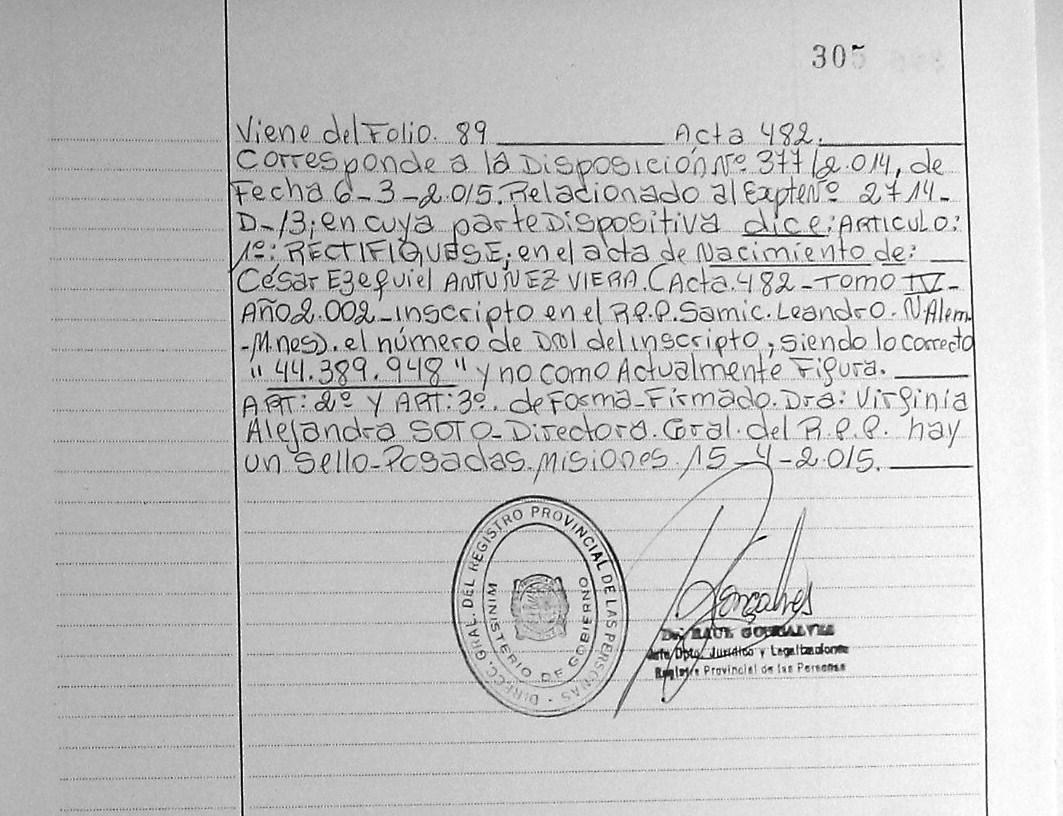 305
Viene del Folio. 89 ____ Acta 482. ____
Corresponde a la Disposición Nº 377/2.014, de
Fecha 6-3-2.015. Relacionado al Expte Nº 2714-
D-13; en cuya parte Dispositiva dice: ARTICULO:
1º: RECTIFIQUESE; en el acta de Nacimiento de: __
César Ezequiel ANTUÑEZ VIERA. (Acta.482-Tomo IV-
Año 2.002-inscripto en el R.P.P. Samic. Leandro. N Alem
-M.nes). el número de DNI del inscripto; siendo lo correcto
"44.389.948" y no como Actualmente Figura. ____
ART: 2º Y ART: 3º. de Forma-Firmado. Dra: Virginia
Alejandra SOTO-Directora. Gral. del R.P.P. hay
un sello-Posadas. Misiones. 15-4-2.015. ____
DIREC. GRAL. DEL REGISTRO PROVINCIAL DE LAS PERSONAS -
MINISTERIO DE GOBIERNO
Gonçalves
Dr. RAUL GONSALVES
Jefe Dpto. Jurídico y Legalizaciones
Registro Provincial de las Personas